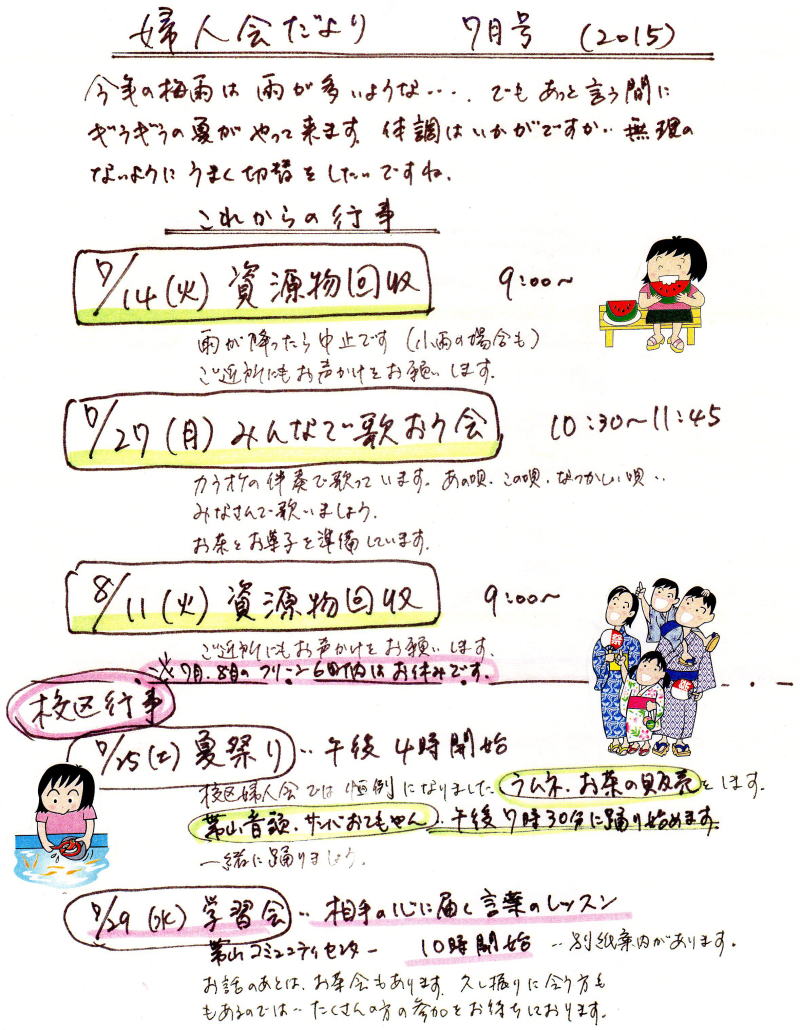 婦人会だより 7月号 (2015)
今年の梅雨は雨が多いような・・・. でもあっと言う間に
ギラギラの夏がやって来ます。体調はいかがですか・・無理の
ないようにうまく切替をしたいですね.
これからの行事
7/14(火) 資源物回収 9:00〜
雨が降ったら中止です (小雨の場合も)
ご近所にもお声かけをお願いします.
7/27(月) みんなで歌おう会 10:30〜11:45
カラオケの伴奏で歌っています. あの唄. この唄. なつかしい唄・・
みなさんで歌いましょう.
お茶とお菓子を準備しています.
8/11(火) 資源物回収 9:00〜
ご近所にもお声かけをお願いします.
※7月. 8月のフリーン6町内はお休みです.
校区行事
7/25(土) 夏祭り・・午後4時開始
校区婦人会では恒例になりました. ラムネ. お茶の販売をします.
帯山音頭. サンバおてもやん. 午後7時30分に踊り始めます.
一緒に踊りましょう.
7/29(水) 学習会・・相手の心に届く言葉のレッスン
帯山コミュニティセンター 10時開始・・別紙案内があります.
お話のあとは. お茶会もあります. 久し振りに会う方も
もあるのでは・・たくさんの方の参加をお待ちしております.